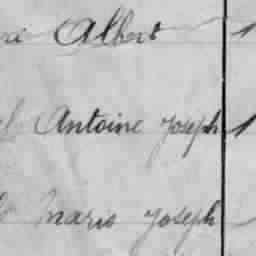 Albert 1
Antoine Joseph 1
Marie Joseph